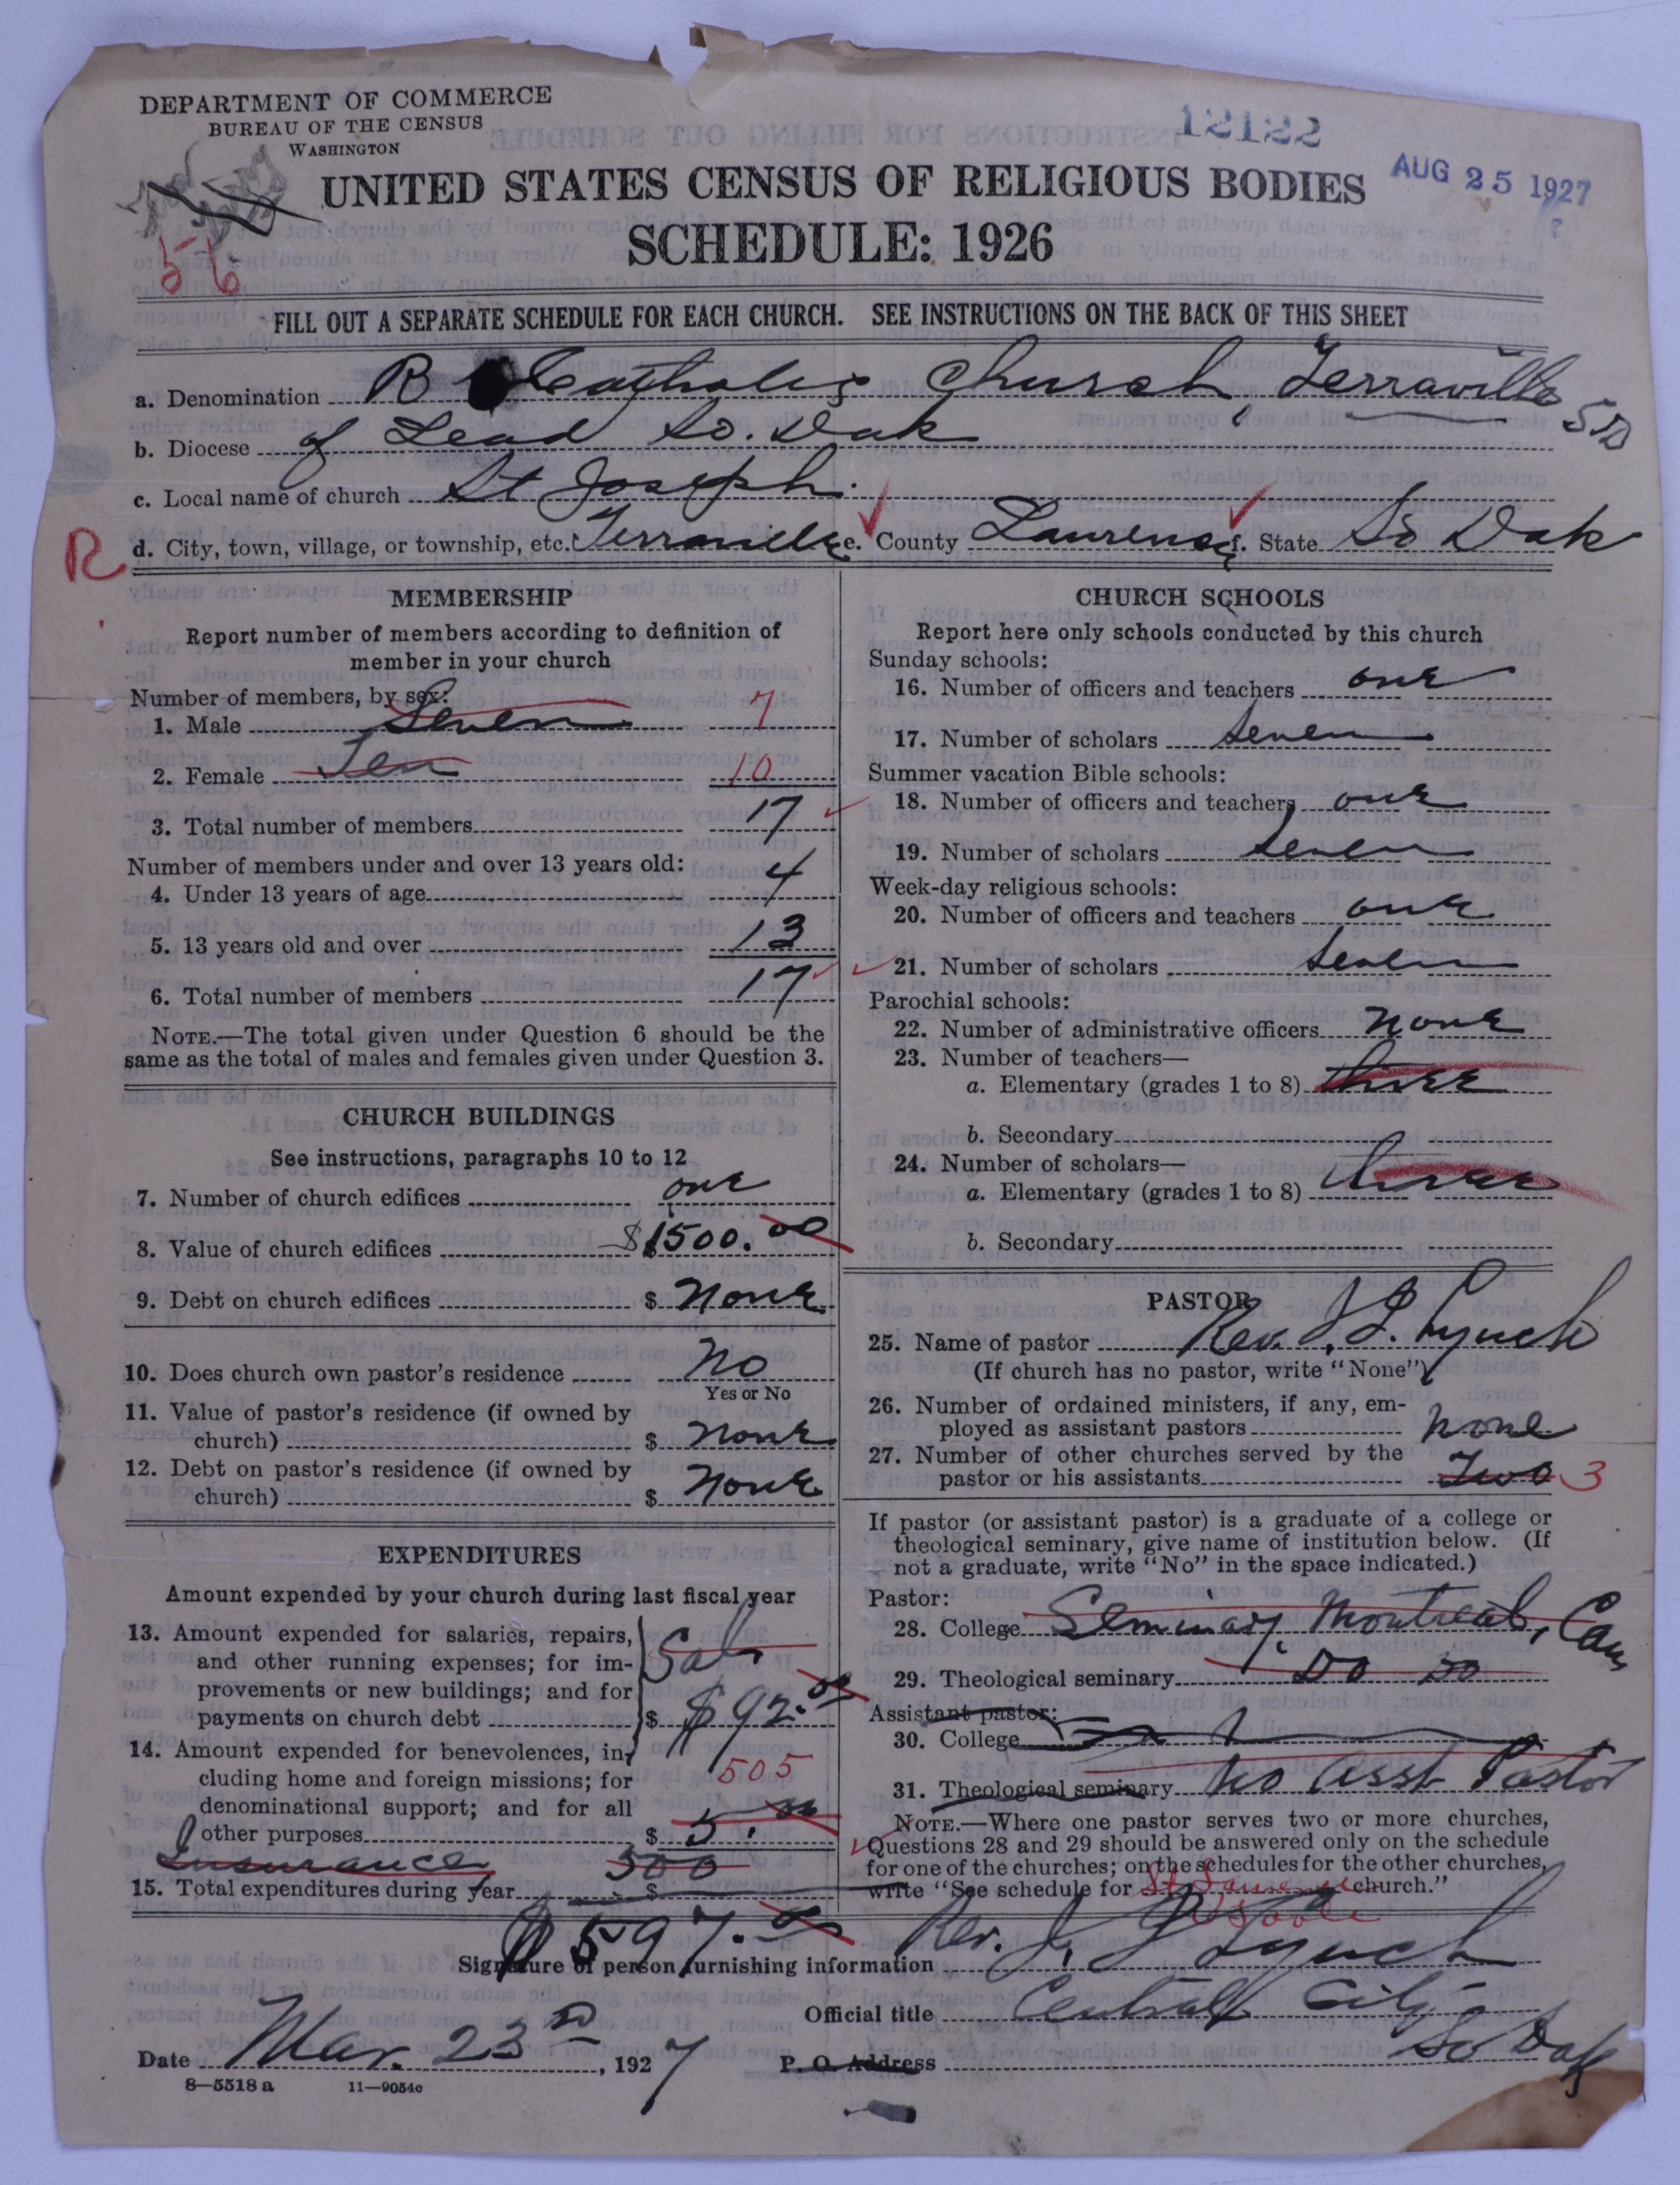 DEPARTMENT OF COMMERCE
BUREAU OF THE CENSUS
WASHINGTON
12122
AUG 25 1927
UNITED STATES CENSUS OF RELIGIOUS BODIES
SCHEDULE: 1926
56
FILL OUT A SEPARATE SCHEDULE FOR EACH CHURCH. SEE INSTRUCTIONS ON THE BACK OF THIS SHEET
a. Denomination R Catholic Church, Terraville SD
b. Diocese of Lead So. Dak
c. Local name of church St Joseph.
R
d. City, town, village, or township, etc. Terraville e. County Lawrence f. State So Dak
MEMBERSHIP
Report number of members according to definition of
member in your church
Number of members, by sex:
1. Male Seven 7
2. Female Ten 10
3. Total number of members 17
Number of members under and over 13 years old:
4. Under 13 years of age 4
5. 13 years old and over 13
6. Total number of members 17
NOTE.—The total given under Question 6 should be the
same as the total of males and females given under Question 3.
CHURCH BUILDINGS
See instructions, paragraphs 10 to 12
7. Number of church edifices one
8. Value of church edifices $1500.00
9. Debt on church edifices $ None
10. Does church own pastor's residence No
Yes or No
11. Value of pastor's residence (if owned by
church) $ None
12. Debt on pastor's residence (if owned by
church) $ None
EXPENDITURES
Amount expended by your church during last fiscal year
13. Amount expended for salaries, repairs,
and other running expenses; for im-
provements or new buildings; and for
payments on church debt $ Sal $92.00
14. Amount expended for benevolences, in-
cluding home and foreign missions; for
denominational support; and for all
other purposes $ 505 5.00
Insurance 500
15. Total expenditures during year $
$597.00
CHURCH SCHOOLS
Report here only schools conducted by this church
Sunday schools:
16. Number of officers and teachers one
17. Number of scholars seven
Summer vacation Bible schools:
18. Number of officers and teachers one
19. Number of scholars seven
Week-day religious schools:
20. Number of officers and teachers one
21. Number of scholars seven
Parochial schools:
22. Number of administrative officers None
23. Number of teachers—
a. Elementary (grades 1 to 8) three
b. Secondary
24. Number of scholars—
a. Elementary (grades 1 to 8) three
b. Secondary
PASTOR
25. Name of pastor Rev. J. J. Lynch
(If church has no pastor, write "None")
26. Number of ordained ministers, if any, em-
ployed as assistant pastors none
27. Number of other churches served by the
pastor or his assistants Two 3
If pastor (or assistant pastor) is a graduate of a college or
theological seminary, give name of institution below. (If
not a graduate, write "No" in the space indicated.)
Pastor:
28. College Seminary, Montreal, Can
29. Theological seminary Do Do
Assistant pastor:
30. College
31. Theological seminary No Asst Pastor
NOTE.—Where one pastor serves two or more churches,
Questions 28 and 29 should be answered only on the schedule
for one of the churches; on the schedules for the other churches,
write "See schedule for St Lawrence church."
Signature of person furnishing information Rev. J. J. Lynch
Official title Central City
So Dak
Date Mar. 23 D, 1927 P. O. Address
8—5518 a 11—9054c